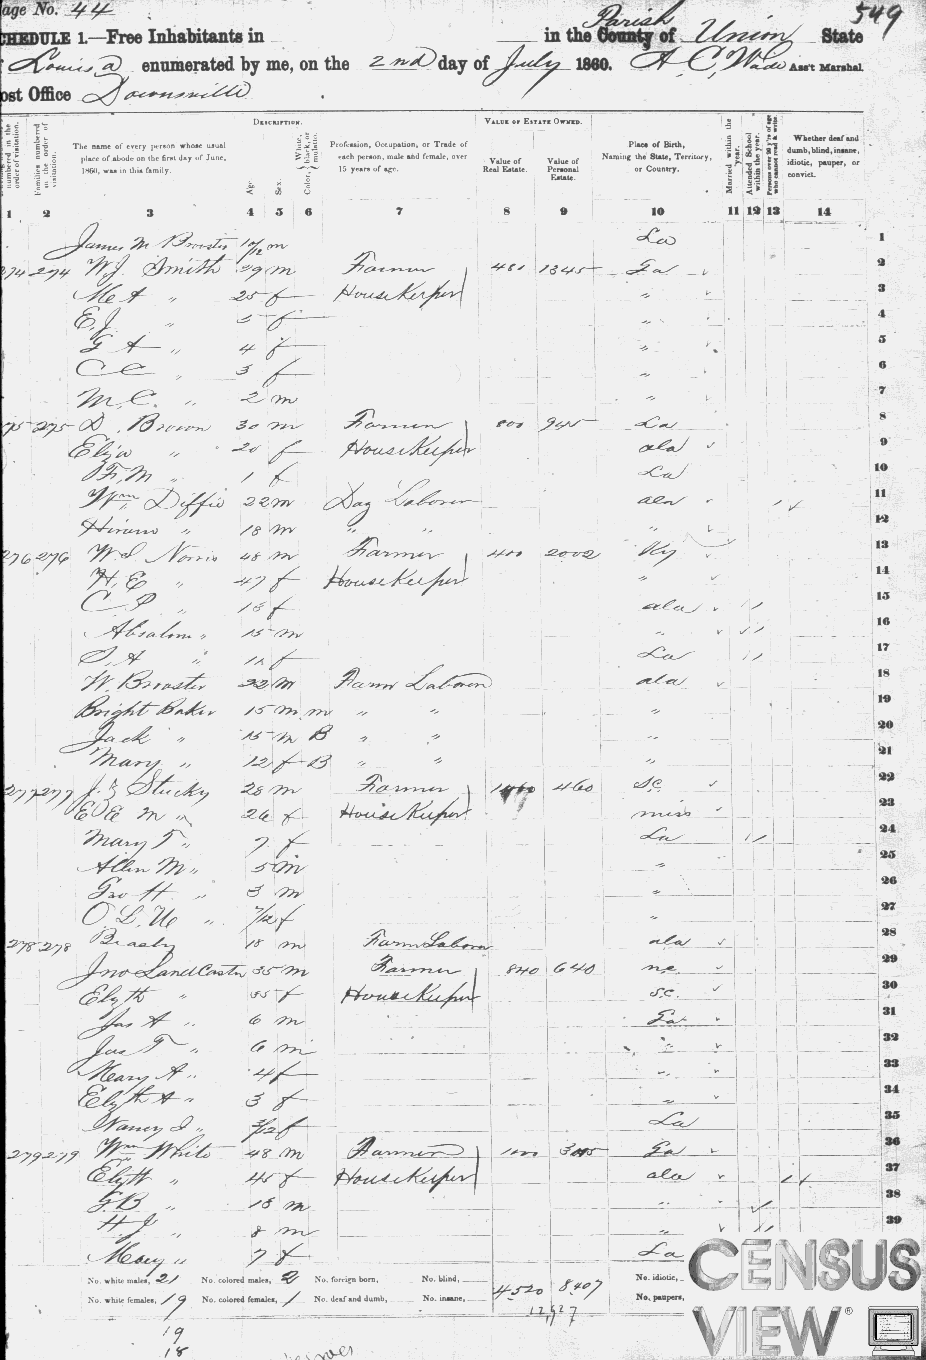 age No. 44
549
CHEDULE 1.—Free Inhabitants in in the County of Parish Union State
Louisa enumerated by me, on the 2nd day of July 1860. A C, Wade Ass't Marshal.
ost Office Downsville
DESCRIPTION. VALUE OF ESTATE OWNED.
numbered in the order of visitation.
Families numbered in the order of visitation.
The name of every person whose usual place of abode on the first day of June, 1860, was in this family.
Age.
Sex.
Color, White, black, or mulatto.
Profession, Occupation, or Trade of each person, male and female, over 15 years of age.
Value of Real Estate.
Value of Personal Estate.
Place of Birth, Naming the State, Territory, or Country.
Married within the year.
Attended School within the year.
Persons over 20 y'rs of age who cannot read & write.
Whether deaf and dumb, blind, insane, idiotic, pauper, or convict.
1 2 3 4 5 6 7 8 9 10 11 12 13 14
James M 10/12 m La 1
274 274 W.J. Smith 29 m Farmer 480 1345 Ga 2
25 f HouseKeeper " 3
E.J. " 5 f " 4
G A " 4 f " 5
C C " 3 f " 6
M.C. " 2 m " 7
275 275 D. Brown 30 m Farmer 800 945 La 8
Eliza " 20 f HouseKeeper ala 9
F.M " 1 f La 10
Wm Diffie 22 m Day Laborer ala 11
Hiram " 18 m " " " 12
276 276 Norris 48 m Farmer 400 2002 Ky 13
H.E " 47 f HouseKeeper " 14
C P " 18 f ala 15
Absalom " 15 m " 16
S.A " f La 17
W. 22 m Farm Laborer ala 18
Bright Baker 15 m m " " " 19
Jack " 15 m B " " " 20
Mary " 12 f B " " " 21
277 277 Stucky 28 m Farmer 460 S.C. 22
E E M " 26 f HouseKeeper miss 23
Mary T " 7 f La 24
Allen M " 5 m " 25
Geo H " 3 m " 26
O L. " 7/12 f " 27
278 278 18 m Farm Labor ala 28
Jno LandCaster 35 m Farmer 840 640 n.c. 29
Elyth " 35 f HouseKeeper S.C. 30
Jas A " 6 m Ga 31
Jas T " 6 m " 32
Mary A " 4 f " 33
Elyth A " 3 f " 34
Nancy J " 3/12 f La 35
279 279 Wm White 48 m Farmer 1000 Ga 36
Elyth " 45 f HouseKeeper ala 37
G.B " 18 m " 38
H J " 8 m " 39
Mary " 7 f La
No. white males, 21 No. colored males, 2 No. foreign born, No. blind, 4520 8407 No. idiotic,
No. white females, 19 No. colored females, 1 No. deaf and dumb, No. insane, No. paupers,
12,927
19
18
CENSUS
VIEW®